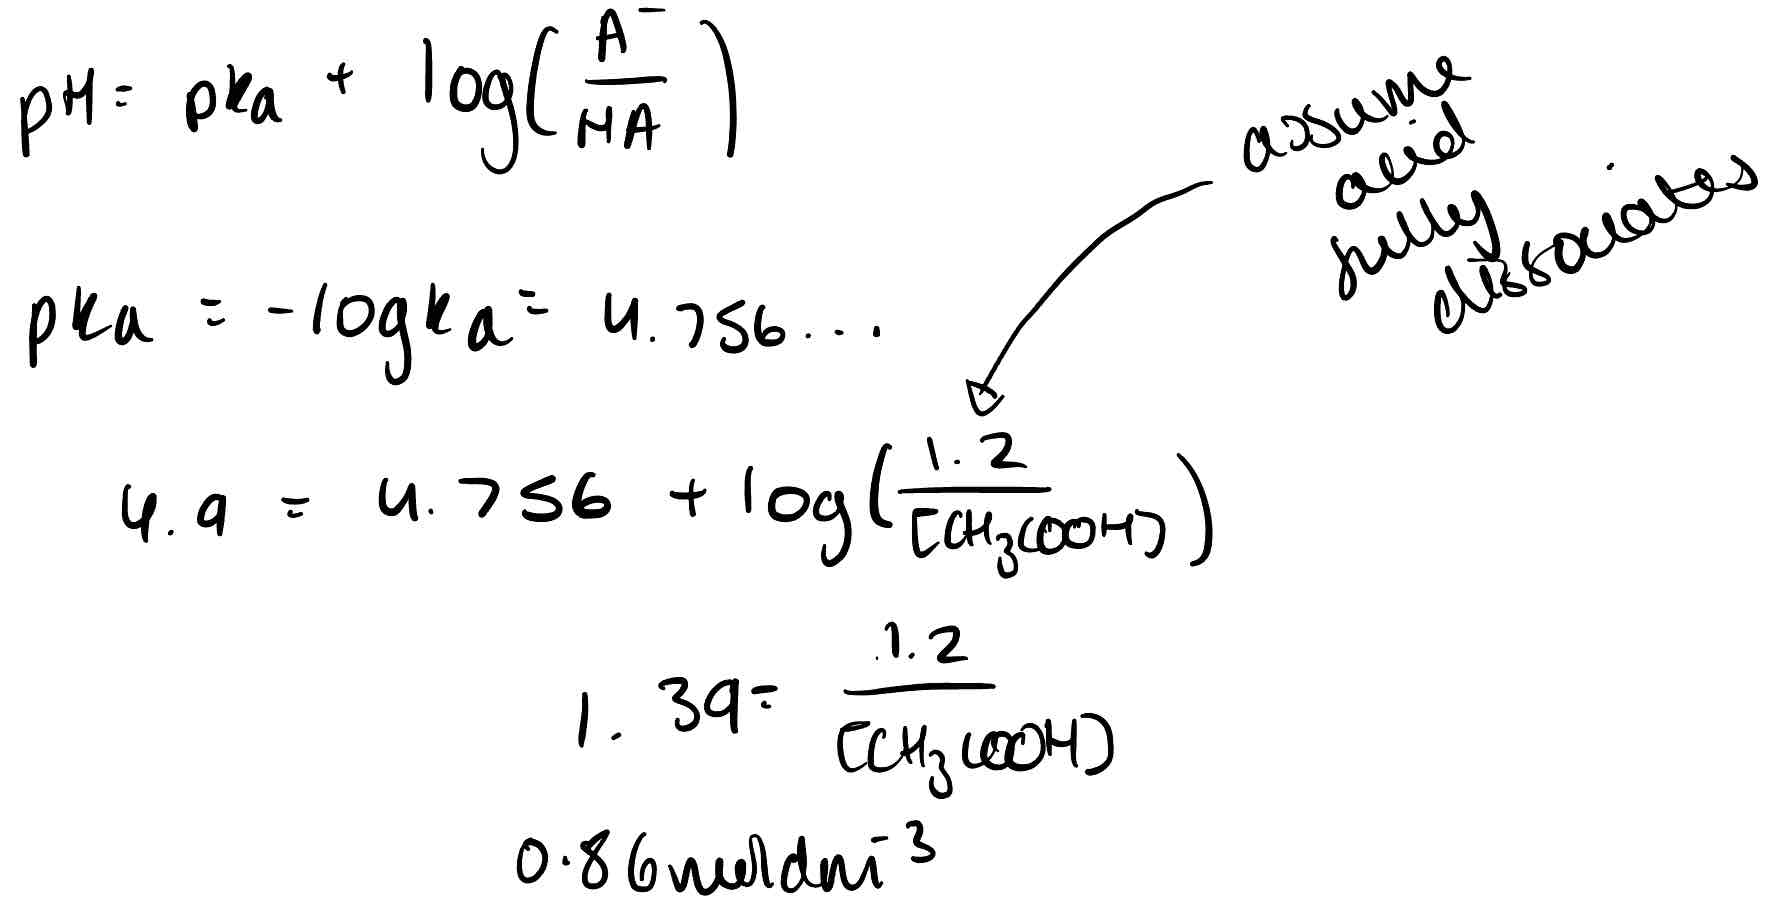 pH = pka + log(A⁻/HA)
assume
acid
fully
dissociates
pka = -log ka = 4.756...
4.9 = 4.756 + log(1.2/[CH₃COOH])
1.39 = 1.2/[CH₃COOH]
0.86 moldm⁻³